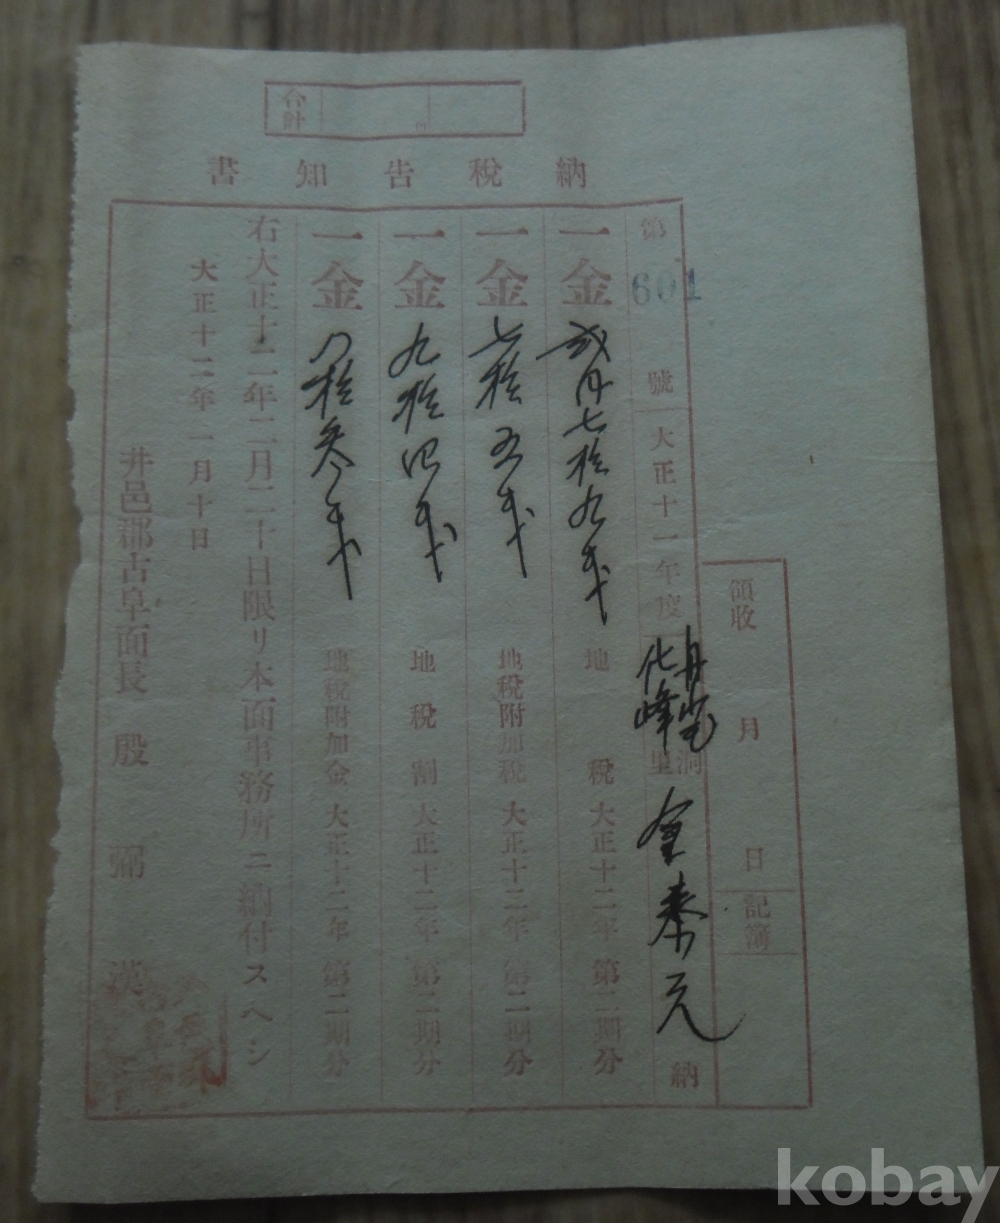 合計
納稅告知書
領收 月 日 記簿
第601號 大正十一年度 化峰里 洞 金泰元 納
一金 貳円七拾九戋 地稅 大正十二年 第二期分
一金 七拾五戋 地稅附加稅 大正十二年 第二期分
一金 九拾四戋 地稅割 大正十二年 第二期分
一金 八拾參戋 地稅附加金 大正十二年 第二期分
右大正十二年二月二十日限リ本面事務所ニ納付スヘシ
大正十二年二月十日
井邑郡古阜面長 殷 弼 漢
kobay